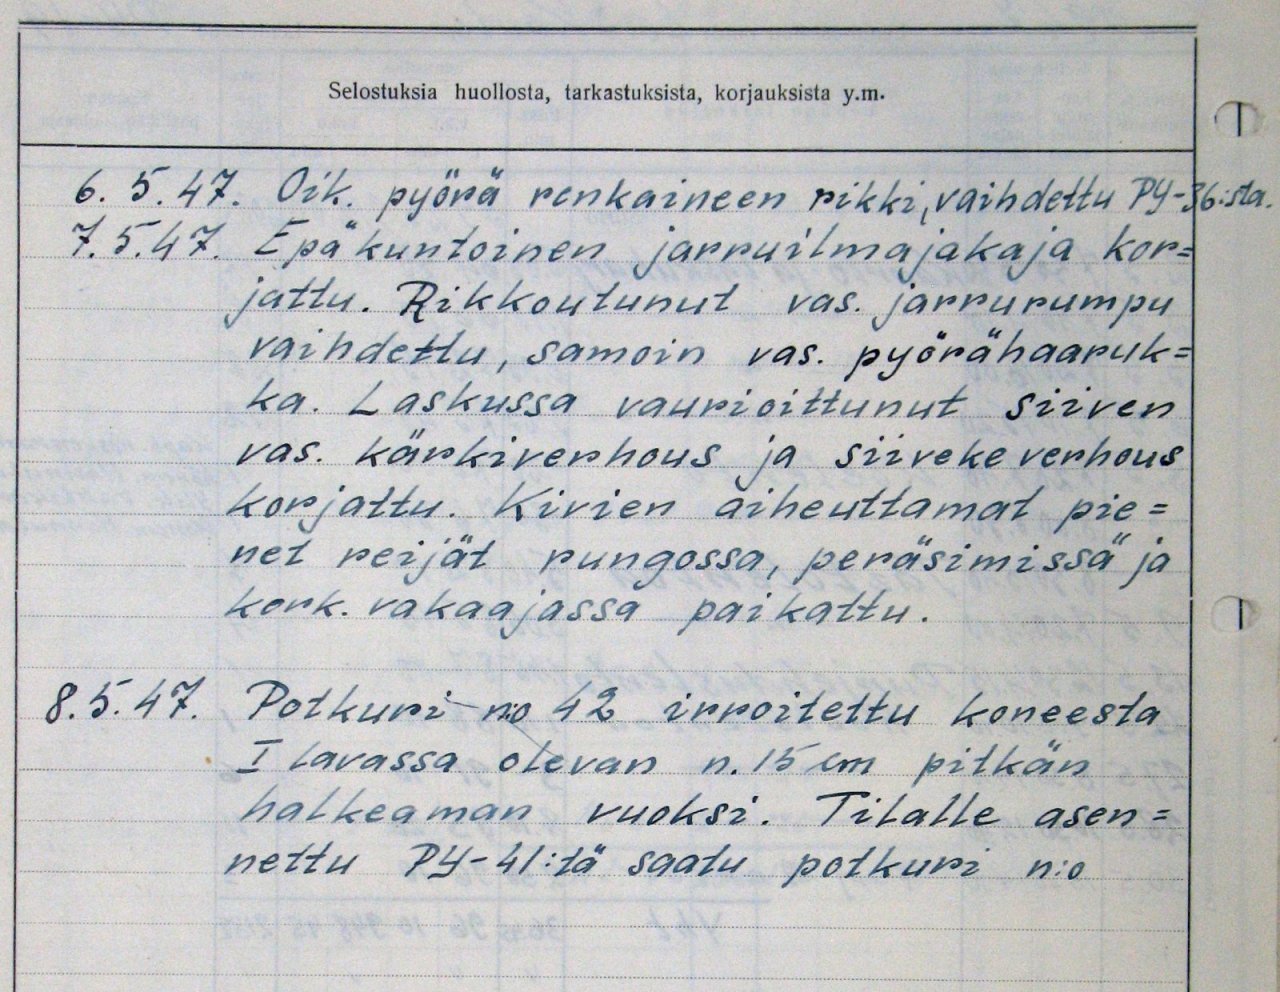 Selostuksia huollosta, tarkastuksista, korjauksista y.m.
6.5.47. Oik. pyörä renkaineen rikki, vaihdettu PY-36:sta.
7.5.47. Epäkuntoinen jarruilmajakaja kor=
jattu. Rikkoutunut vas. jarrurumpu
vaihdettu, samoin vas. pyörähaaruk=
ka. Laskussa vaurioittunut siiven
vas. kärkiverhous ja siivekeverhous
korjattu. Kivien aiheuttamat pie=
net reijät rungossa, peräsimissä ja
kork. vakaajassa paikattu.
8.5.47. Potkuri n:o 42 irroitettu koneesta
I lavassa olevan n. 15 cm pitkän
halkeaman vuoksi. Tilalle asen=
nettu PY-41:tä saatu potkuri n:o